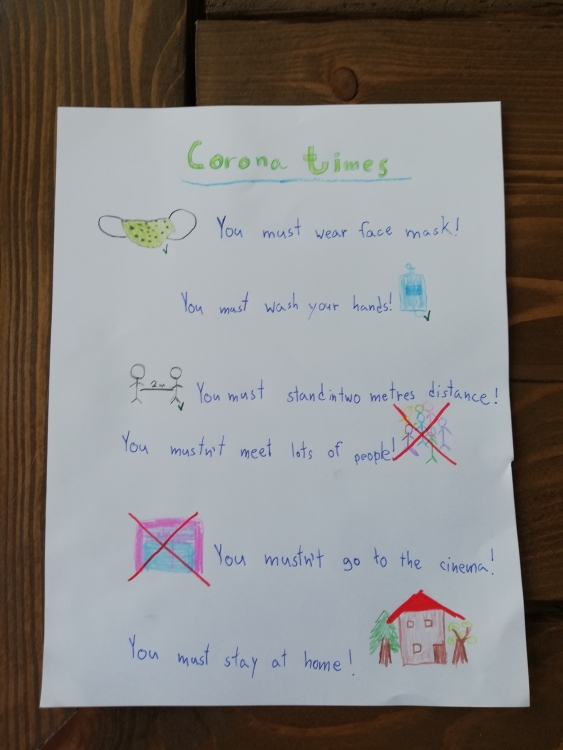 Corona times
You must wear face mask!
You must wash your hands!
2m
You must stand in two metres distance!
You mustn't meet lots of people!
You mustn't go to the cinema!
You must stay at home!